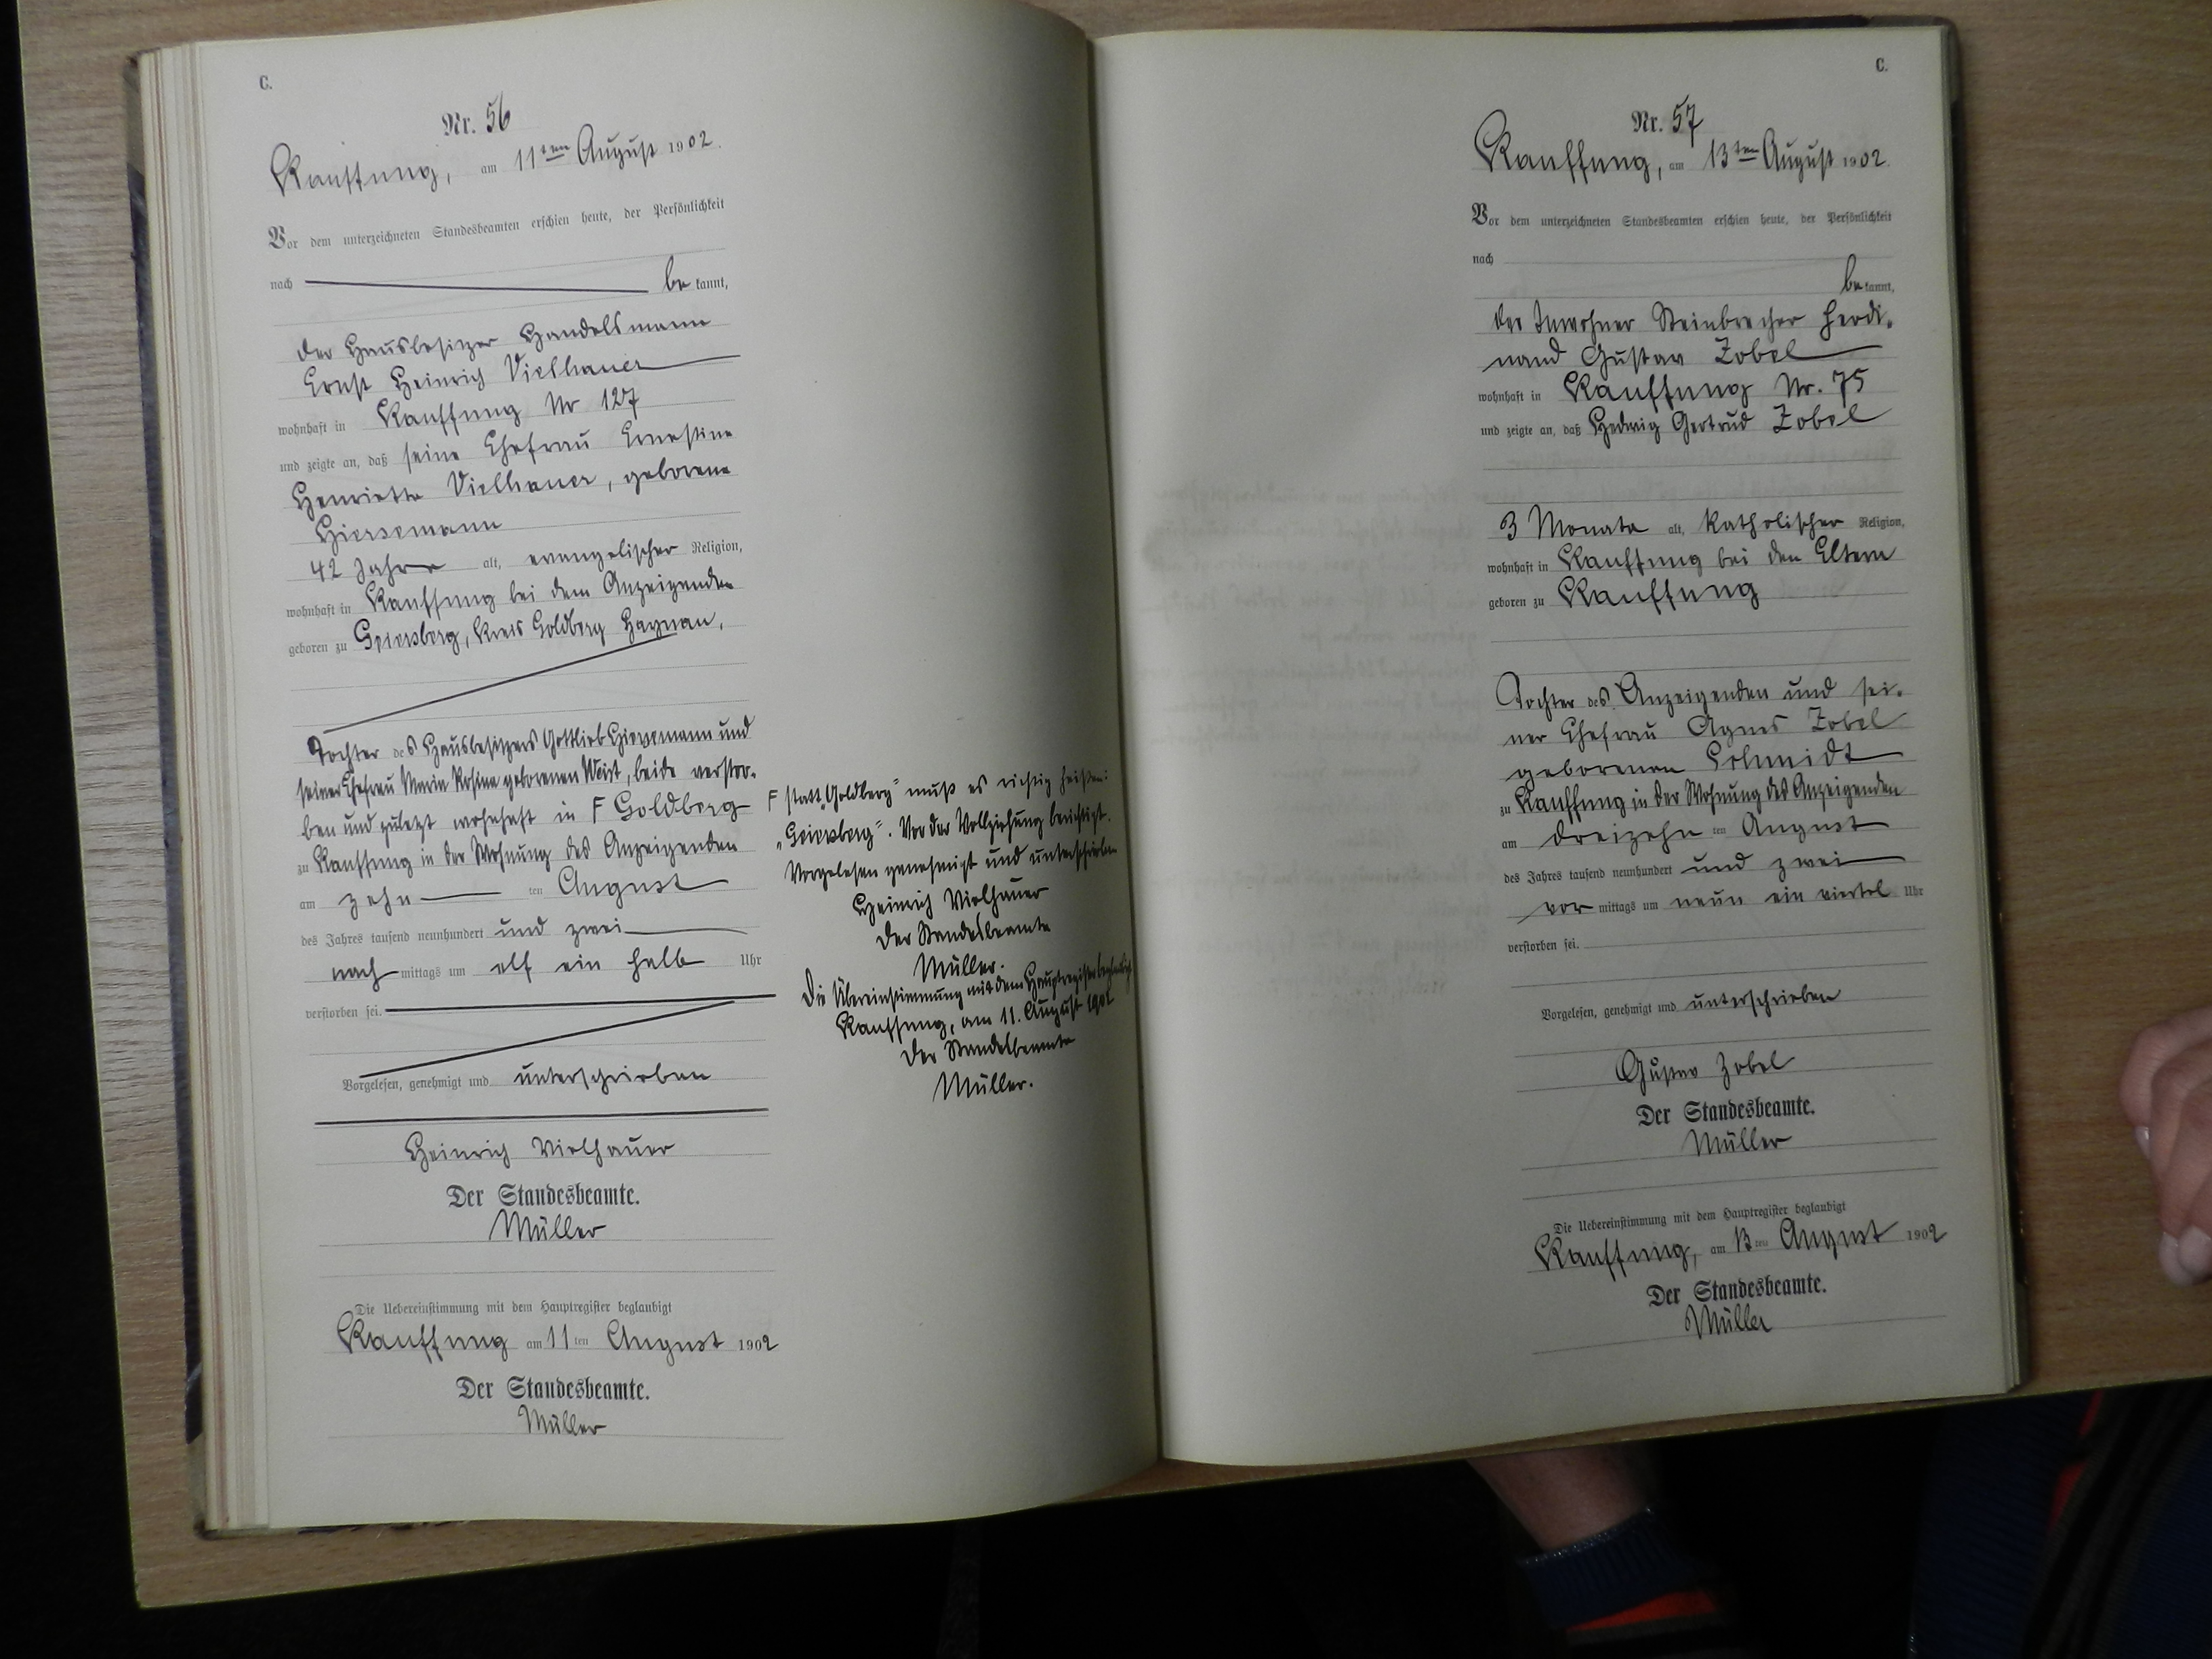 C.
Nr. 56
Kauffung, am 11ten August 1902.
Vor dem unterzeichneten Standesbeamten erschien heute, der Persönlichkeit
nach be kannt,
der Hausbesitzer Handelsmann
Ernst Heinrich Vielhauer
wohnhaft in Kauffung Nr 127
und zeigte an, daß seine Ehefrau Ernestine
Henriette Vielhauer, geborene
Hiersemann
42 Jahre alt, evangelischer Religion,
wohnhaft in Kauffung bei dem Anzeigenden
geboren zu Geiersberg, Kreis Goldberg Haynau,
Tochter des Hausbesitzers Gottlieb Hiersemann und
seiner Ehefrau Maria Rosina geborenen Weist, beide verstor-
ben und zuletzt wohnhaft in F Goldberg
zu Kauffung in der Wohnung des Anzeigenden
am zehn ten August
des Jahres tausend neunhundert und zwei
nach mittags um elf ein halb Uhr
verstorben sei.
Vorgelesen, genehmigt und unterschrieben
Heinrich Vielhauer
Der Standesbeamte.
Müller
Die Uebereinstimmung mit dem Hauptregister beglaubigt
Kauffung am 11ten August 1902
Der Standesbeamte.
Müller
F statt „Goldberg“ muß es richtig heißen:
„Geiersberg“. Vor der Vollziehung berichtigt.
Vorgelesen genehmigt und unterschrieben
Heinrich Vielhauer
Der Standesbeamte
Müller.
Die Übereinstimmung mit dem Hauptregister beglaubigt
Kauffung, am 11. August 1902
Der Standesbeamte
Müller.
C.
Nr. 57
Kauffung, am 13ten August 1902.
Vor dem unterzeichneten Standesbeamten erschien heute, der Persönlichkeit
nach
be kannt,
der Inwohner Steinbrecher Ferdi-
nand Gustav Zobel
wohnhaft in Kauffung Nr. 75
und zeigte an, daß Hedwig Gertrud Zobel
3 Monate alt, katholischer Religion,
wohnhaft in Kauffung bei den Eltern
geboren zu Kauffung
Tochter des Anzeigenden und sei-
ner Ehefrau Agnes Zobel
geborenen Schmidt
zu Kauffung in der Wohnung des Anzeigenden
am dreizehn ten August
des Jahres tausend neunhundert und zwei
vor mittags um neun ein viertel Uhr
verstorben sei.
Vorgelesen, genehmigt und unterschrieben
Gustav Zobel
Der Standesbeamte.
Müller
Die Uebereinstimmung mit dem Hauptregister beglaubigt
Kauffung, am 13ten August 1902
Der Standesbeamte.
Müller